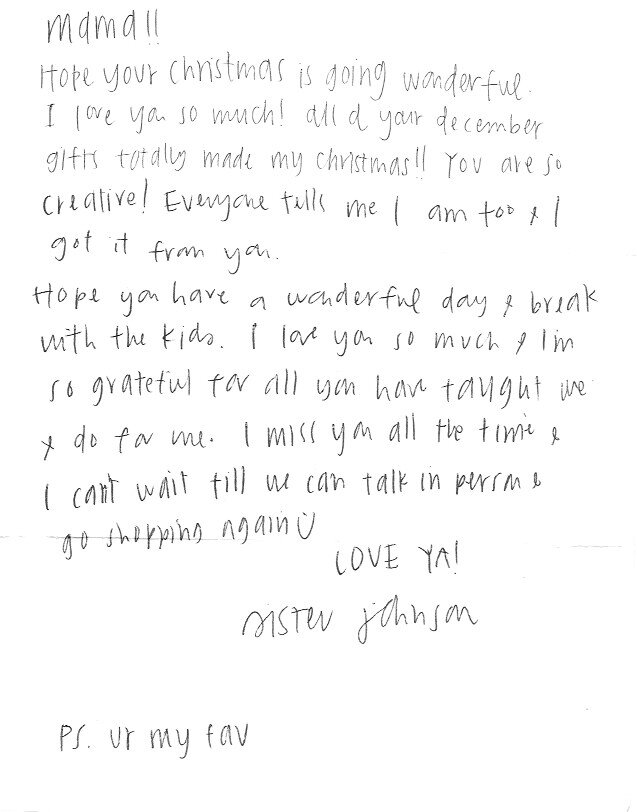 Mama!!
Hope your christmas is going wonderful.
I love you so much! all d your december
gifts totally made my christmas!! You are so
creative! Everyone tells me I am too & I
got it from you.
Hope you have a wonderful day & break
with the kids. I love you so much & I'm
so grateful for all you have taught me
& do for me. I miss you all the time &
I can't wait till we can talk in person &
go shopping again
LOVE YA!
sister johnson
PS. ur my fav